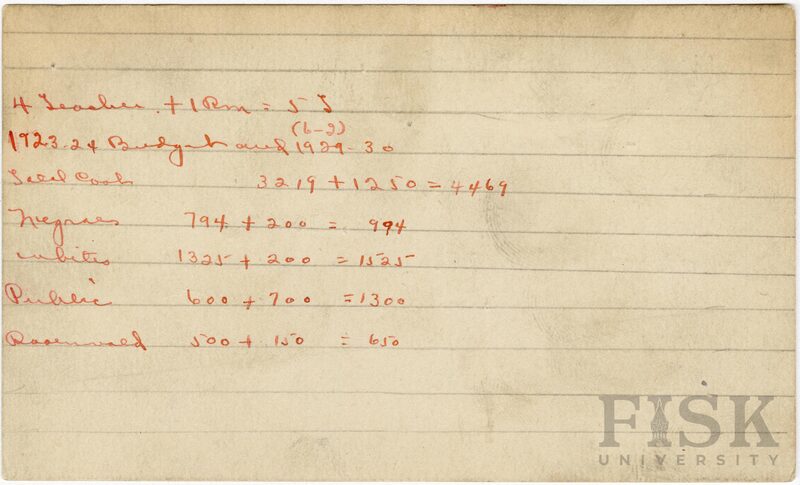 4 Teacher + 1 Rm = 5 T
(6-2)
1923-24 Budget and 1929-30
Total Cost 3219 + 1250 = 4469
Negroes 794 + 200 = 994
whites 1325 + 200 = 1525
Public 600 + 700 = 1300
Rosenwald 500 + 150 = 650
FISK
UNIVERSITY